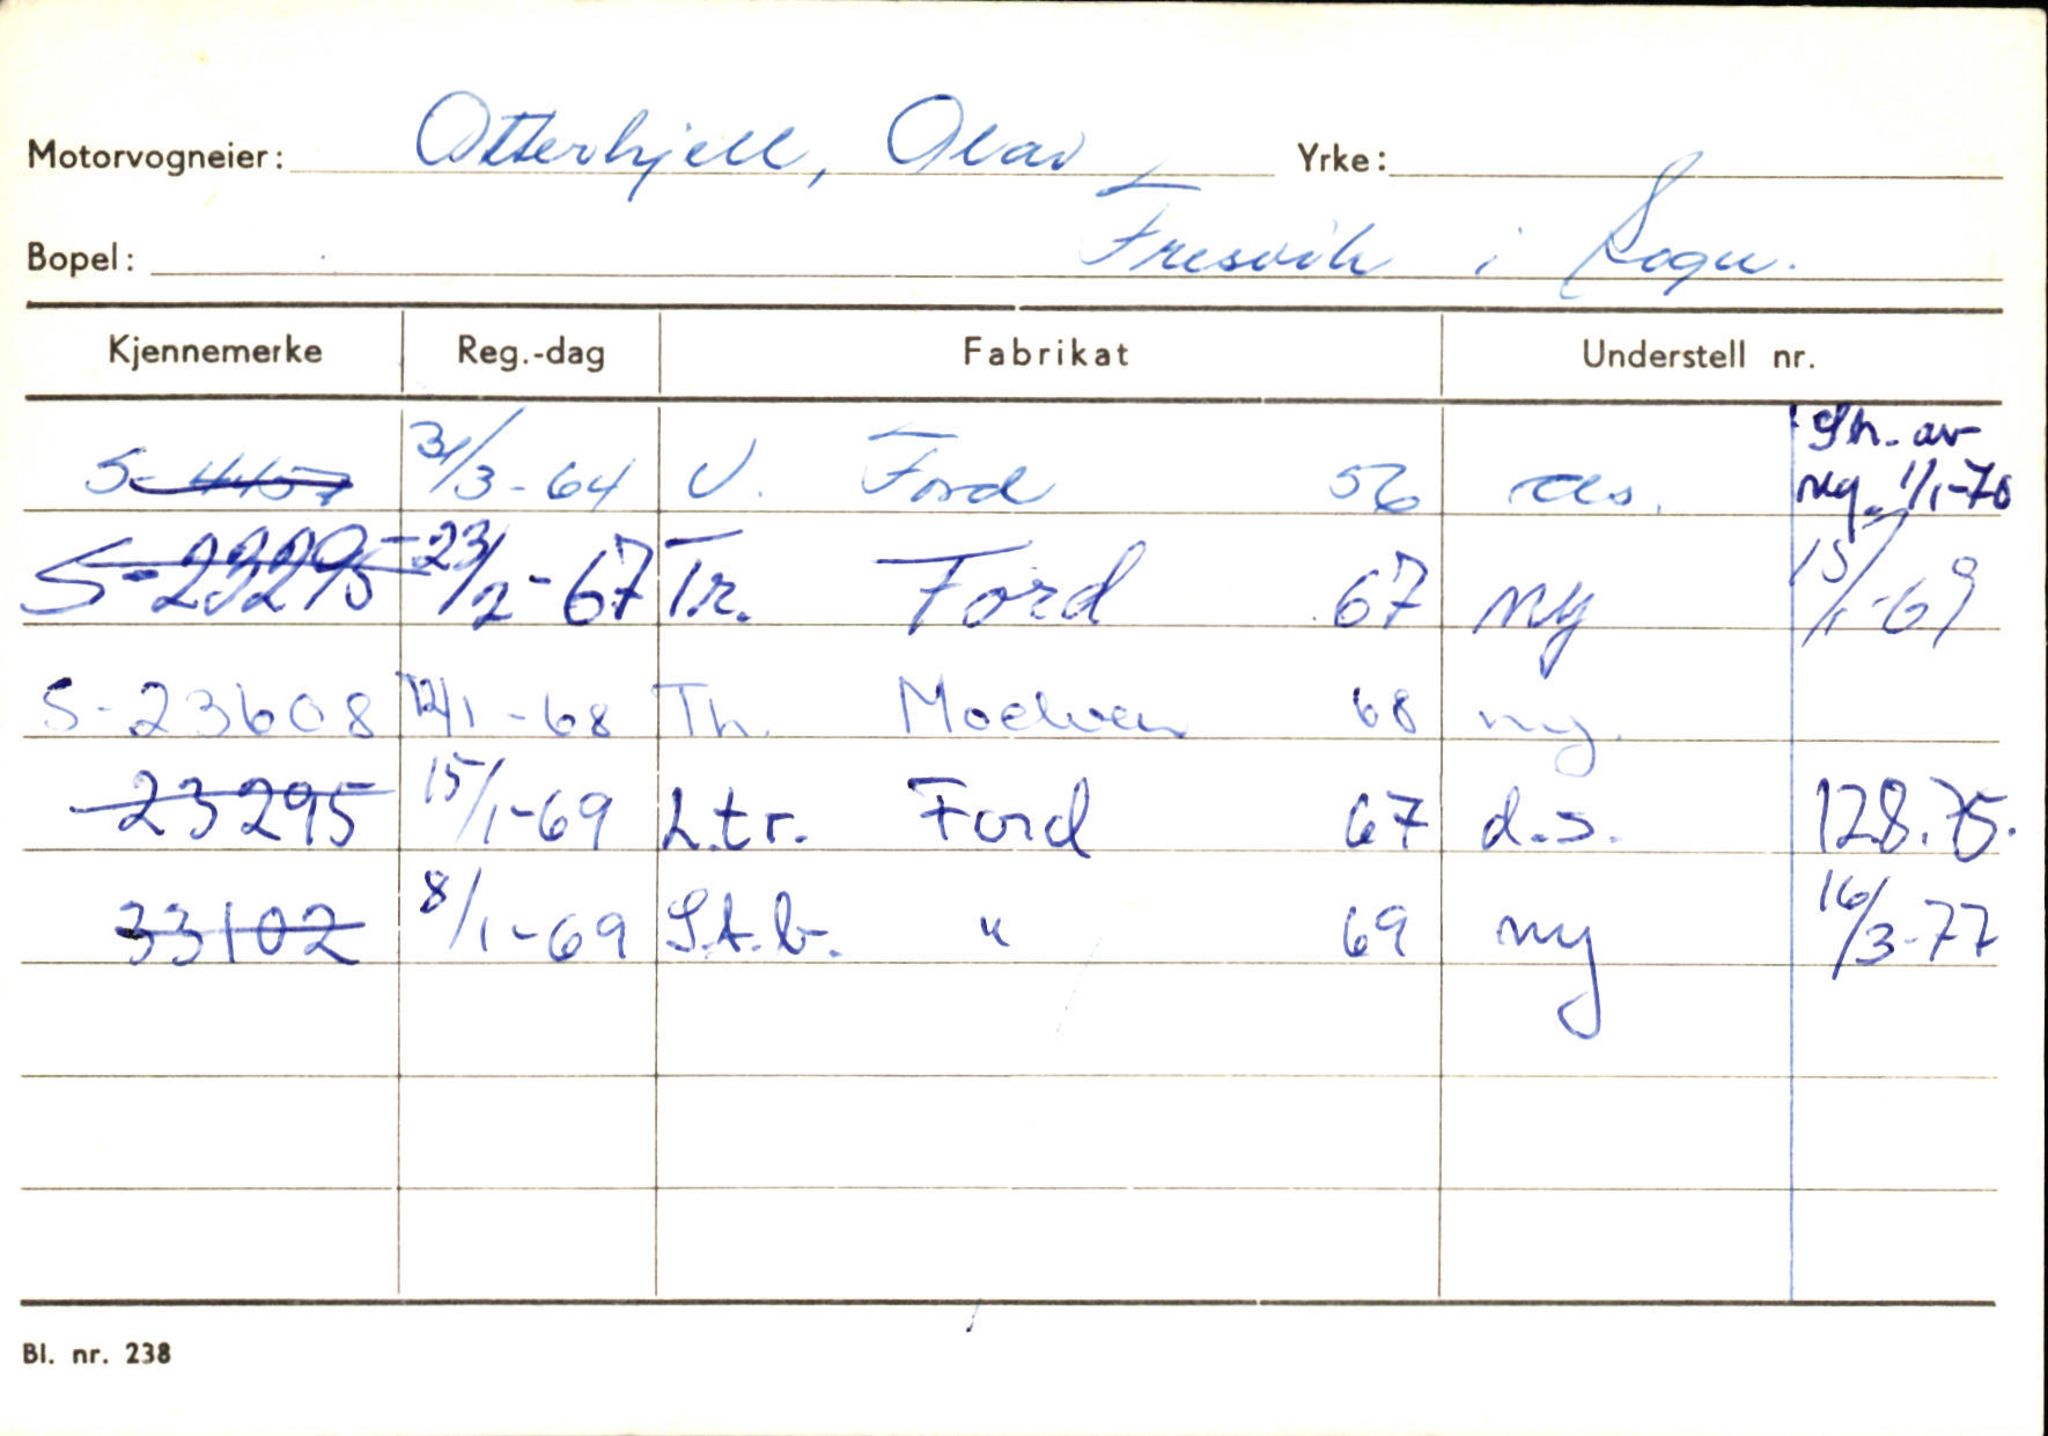 Motorvogneier: Otterhjell, Olav Yrke:
Bopel: Fresvik i Sogn.
Kjennemerke Reg.-dag Fabrikat Understell nr.
S-4457 31/3-64 V. Ford 56 ds. Sk. av
reg. 1/1-70
S-23295 23/2-67 Tr. Ford 67 ny 15/1-69
S-23608 12/1-68 Th. Moelven 68 ny.
23295 15/1-69 L.tr. Ford 67 d.s. 128.75.
33102 8/1-69 St.b. " 69 ny 16/3-77
Bl. nr. 238